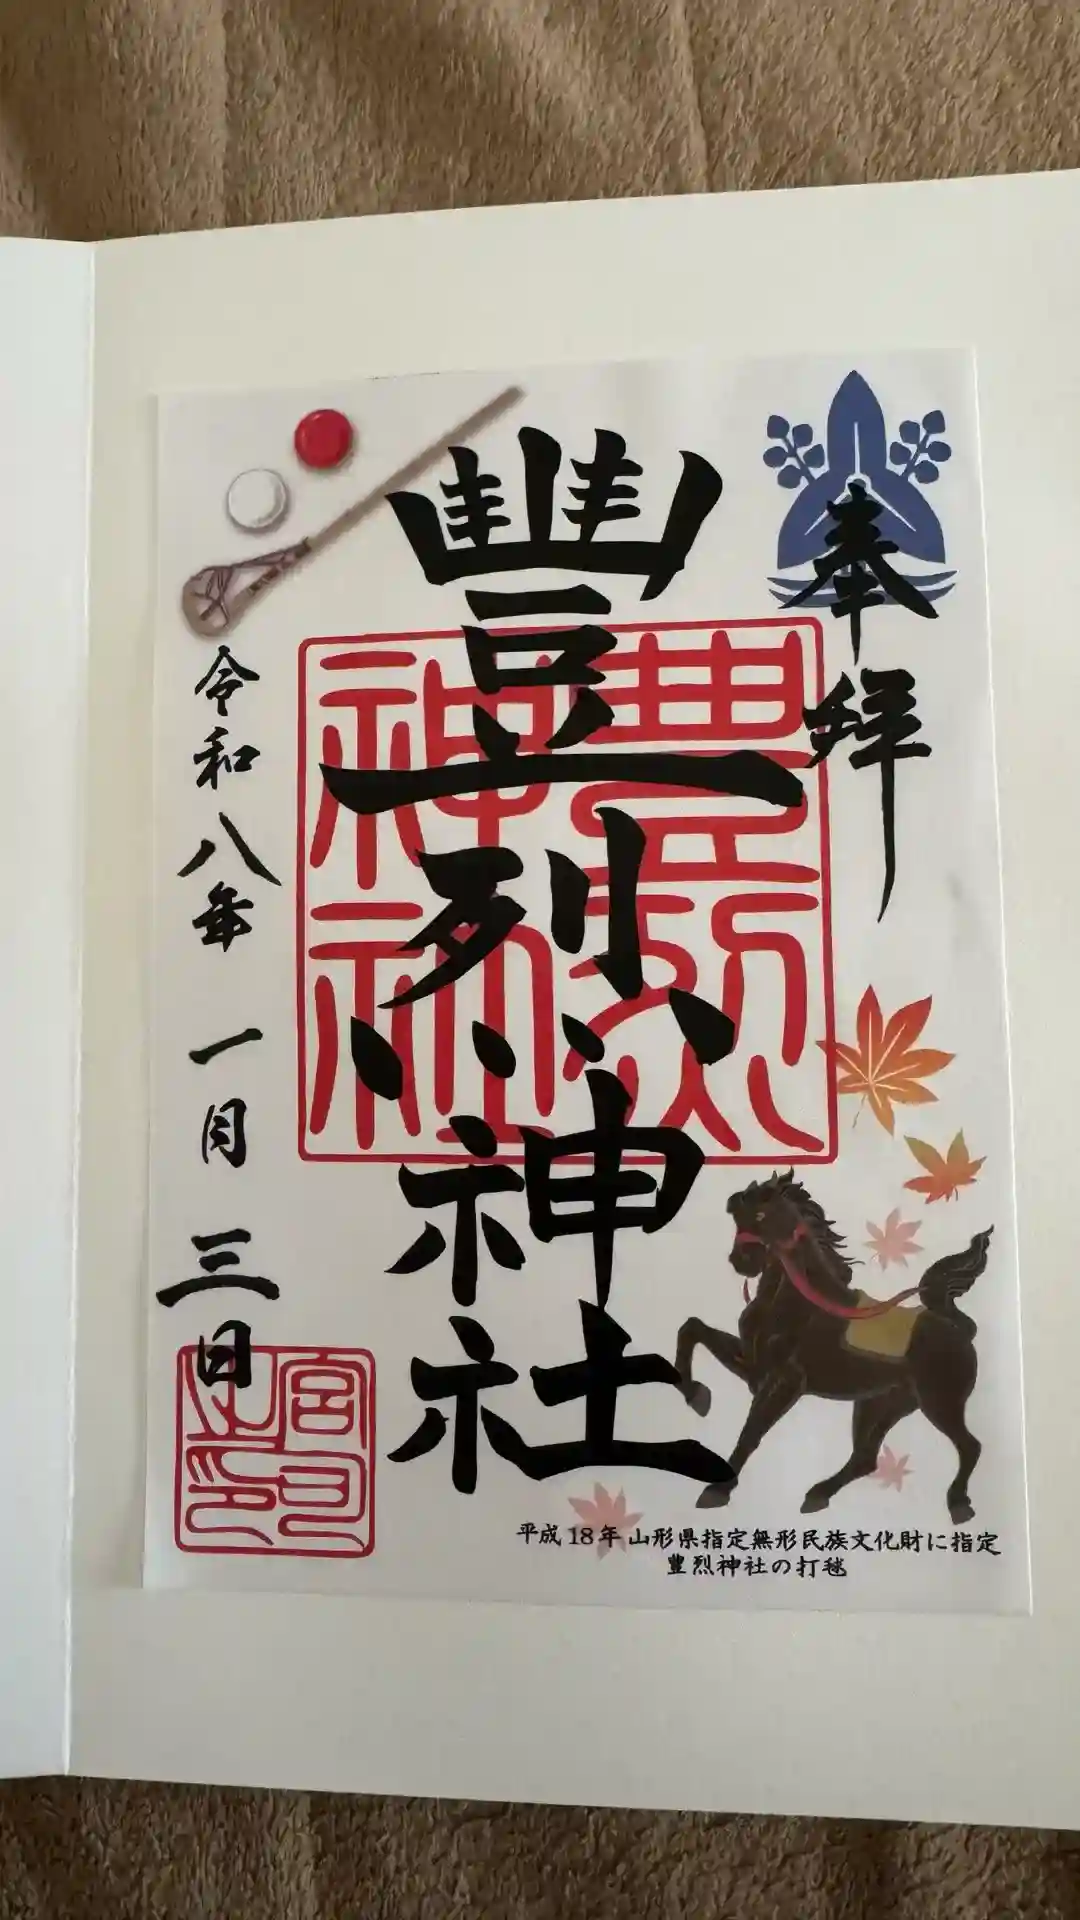 奉拝
豐烈神社
豊烈神社
令和八年 一月 三日
宮司之印
平成18年山形県指定無形民族文化財に指定
豊烈神社の打毬